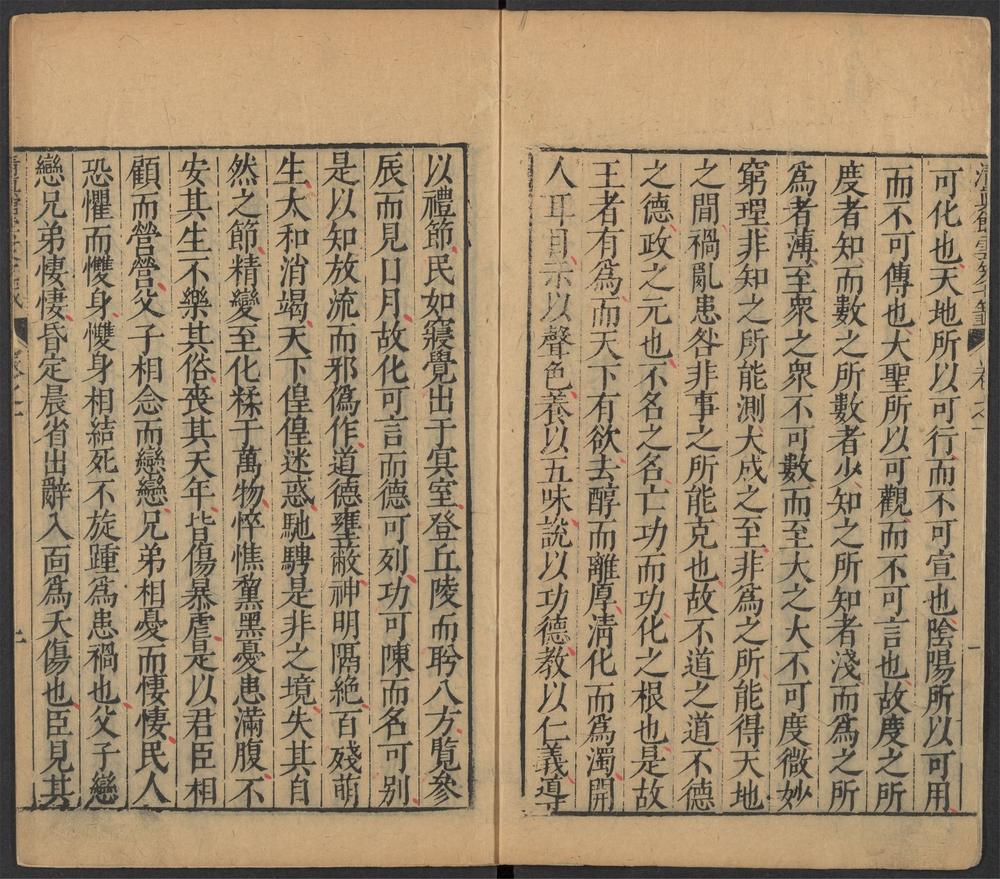 可化也天地所以可行而不可宣也陰陽所以可用
而不可傳也大聖所以可觀而不可言也故度之所
度者知而數之所數者少知之所知者淺而爲之所
爲者薄至衆之衆不可數而至大之大不可度微妙
窮理非知之所能測大成之至非爲之所能得天地
之間禍亂患咎非事之所能克也故不道之道不德
之德政之元也不名之名亡功而功化之根也是故
王者有爲而天下有欲去醇而離厚淸化而爲濁開
人耳目示以聲色養以五味說以功德教以仁義導
以禮節民如寢覺出于冥室登丘陵而聆八方覽參
辰而見日月故化可言而德可列功可陳而名可别
是以知放流而邪僞作道德壅蔽神明隔絶百殘萌
生太和消竭天下偟偟迷惑馳騁是非之境失其自
然之節精變至化糅于萬物悴憔黧黑憂患滿腹不
安其生不樂其俗喪其天年皆傷暴虐是以君臣相
顧而營營父子相念而戀戀兄弟相憂而悽悽民人
恐懼而慞身慞身相結死不旋踵爲患禍也父子戀
戀兄弟悽悽昏定晨省出辭入面爲夭傷也臣見其